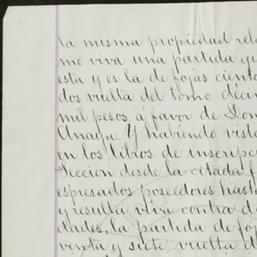 la misma propiedad rela
mo viva una partida qu
esta y es la de fojas cient
dos vuelta del tomo décim
mil pesos, a favor de Don
Anaya Y habiendo visto
en los libros de inscripc
Seccion desde la citada f
espresados poseedores hast
y resulta viva contra d
dades, la partida de foj
venta y siete vuelta d